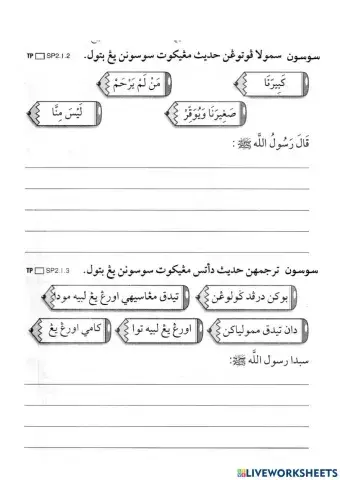 سوسون سمولا ڤوتوڠن حديث مڠيكوت سوسونن يڠ بتول. TP SP2.1.2
كَبِيرَنَا مَنْ لَمْ يَرْحَمْ
صَغِيرَنَا وَيُوَقِّرْ لَيْسَ مِنَّا
قَالَ رَسُولُ اللَّه ﷺ :
سوسون ترجمهن حديث دأتس مڠيكوت سوسونن يڠ بتول. TP SP2.1.3
بوكن درڤد ݢولوڠن تيدق مڠاسيهي اورڠ يڠ لبيه مودا
دان تيدق ممولياكن اورڠ يڠ لبيه توا كامي اورڠ يڠ
سبدا رسول اللَّه ﷺ:
LIVEWORKSHEETS